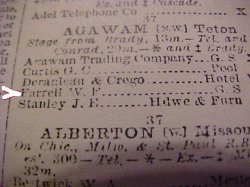 Adel Telephone Co X
37
AGAWAM (nw) Teton
Stage from Brady, 13m—Tel—and
Conrad, 20m—* and ‡ Brady.
Agawam Trading Company G S
Curtis G C
Deradleau & Crego Hotel
Farrell W F G S
Stanley J E Hdwe & Furn
37
ALBERTON (w) Missou
On Chic., Milw. & St. Paul R.R
est, 300—Tel—*—Ex—‡
32m